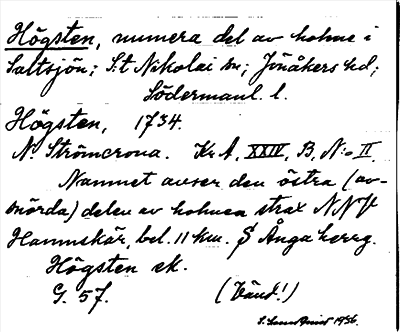 Högsten, numera del av holme i
Saltsjön; S:t Nikolai sn; Jönåkers hd;
Södermanl. l.
Högsten, 1734.
N. Strömcrona. Kr A, XXIV, B, N:o II.
Namnet avser den östra (av-
snörda) delen av holmen strax NNV
Hamnskär, bel. 11 km. S Ånga herrg.
Högsten sk.
G. 57. (Vänd!)
1936.